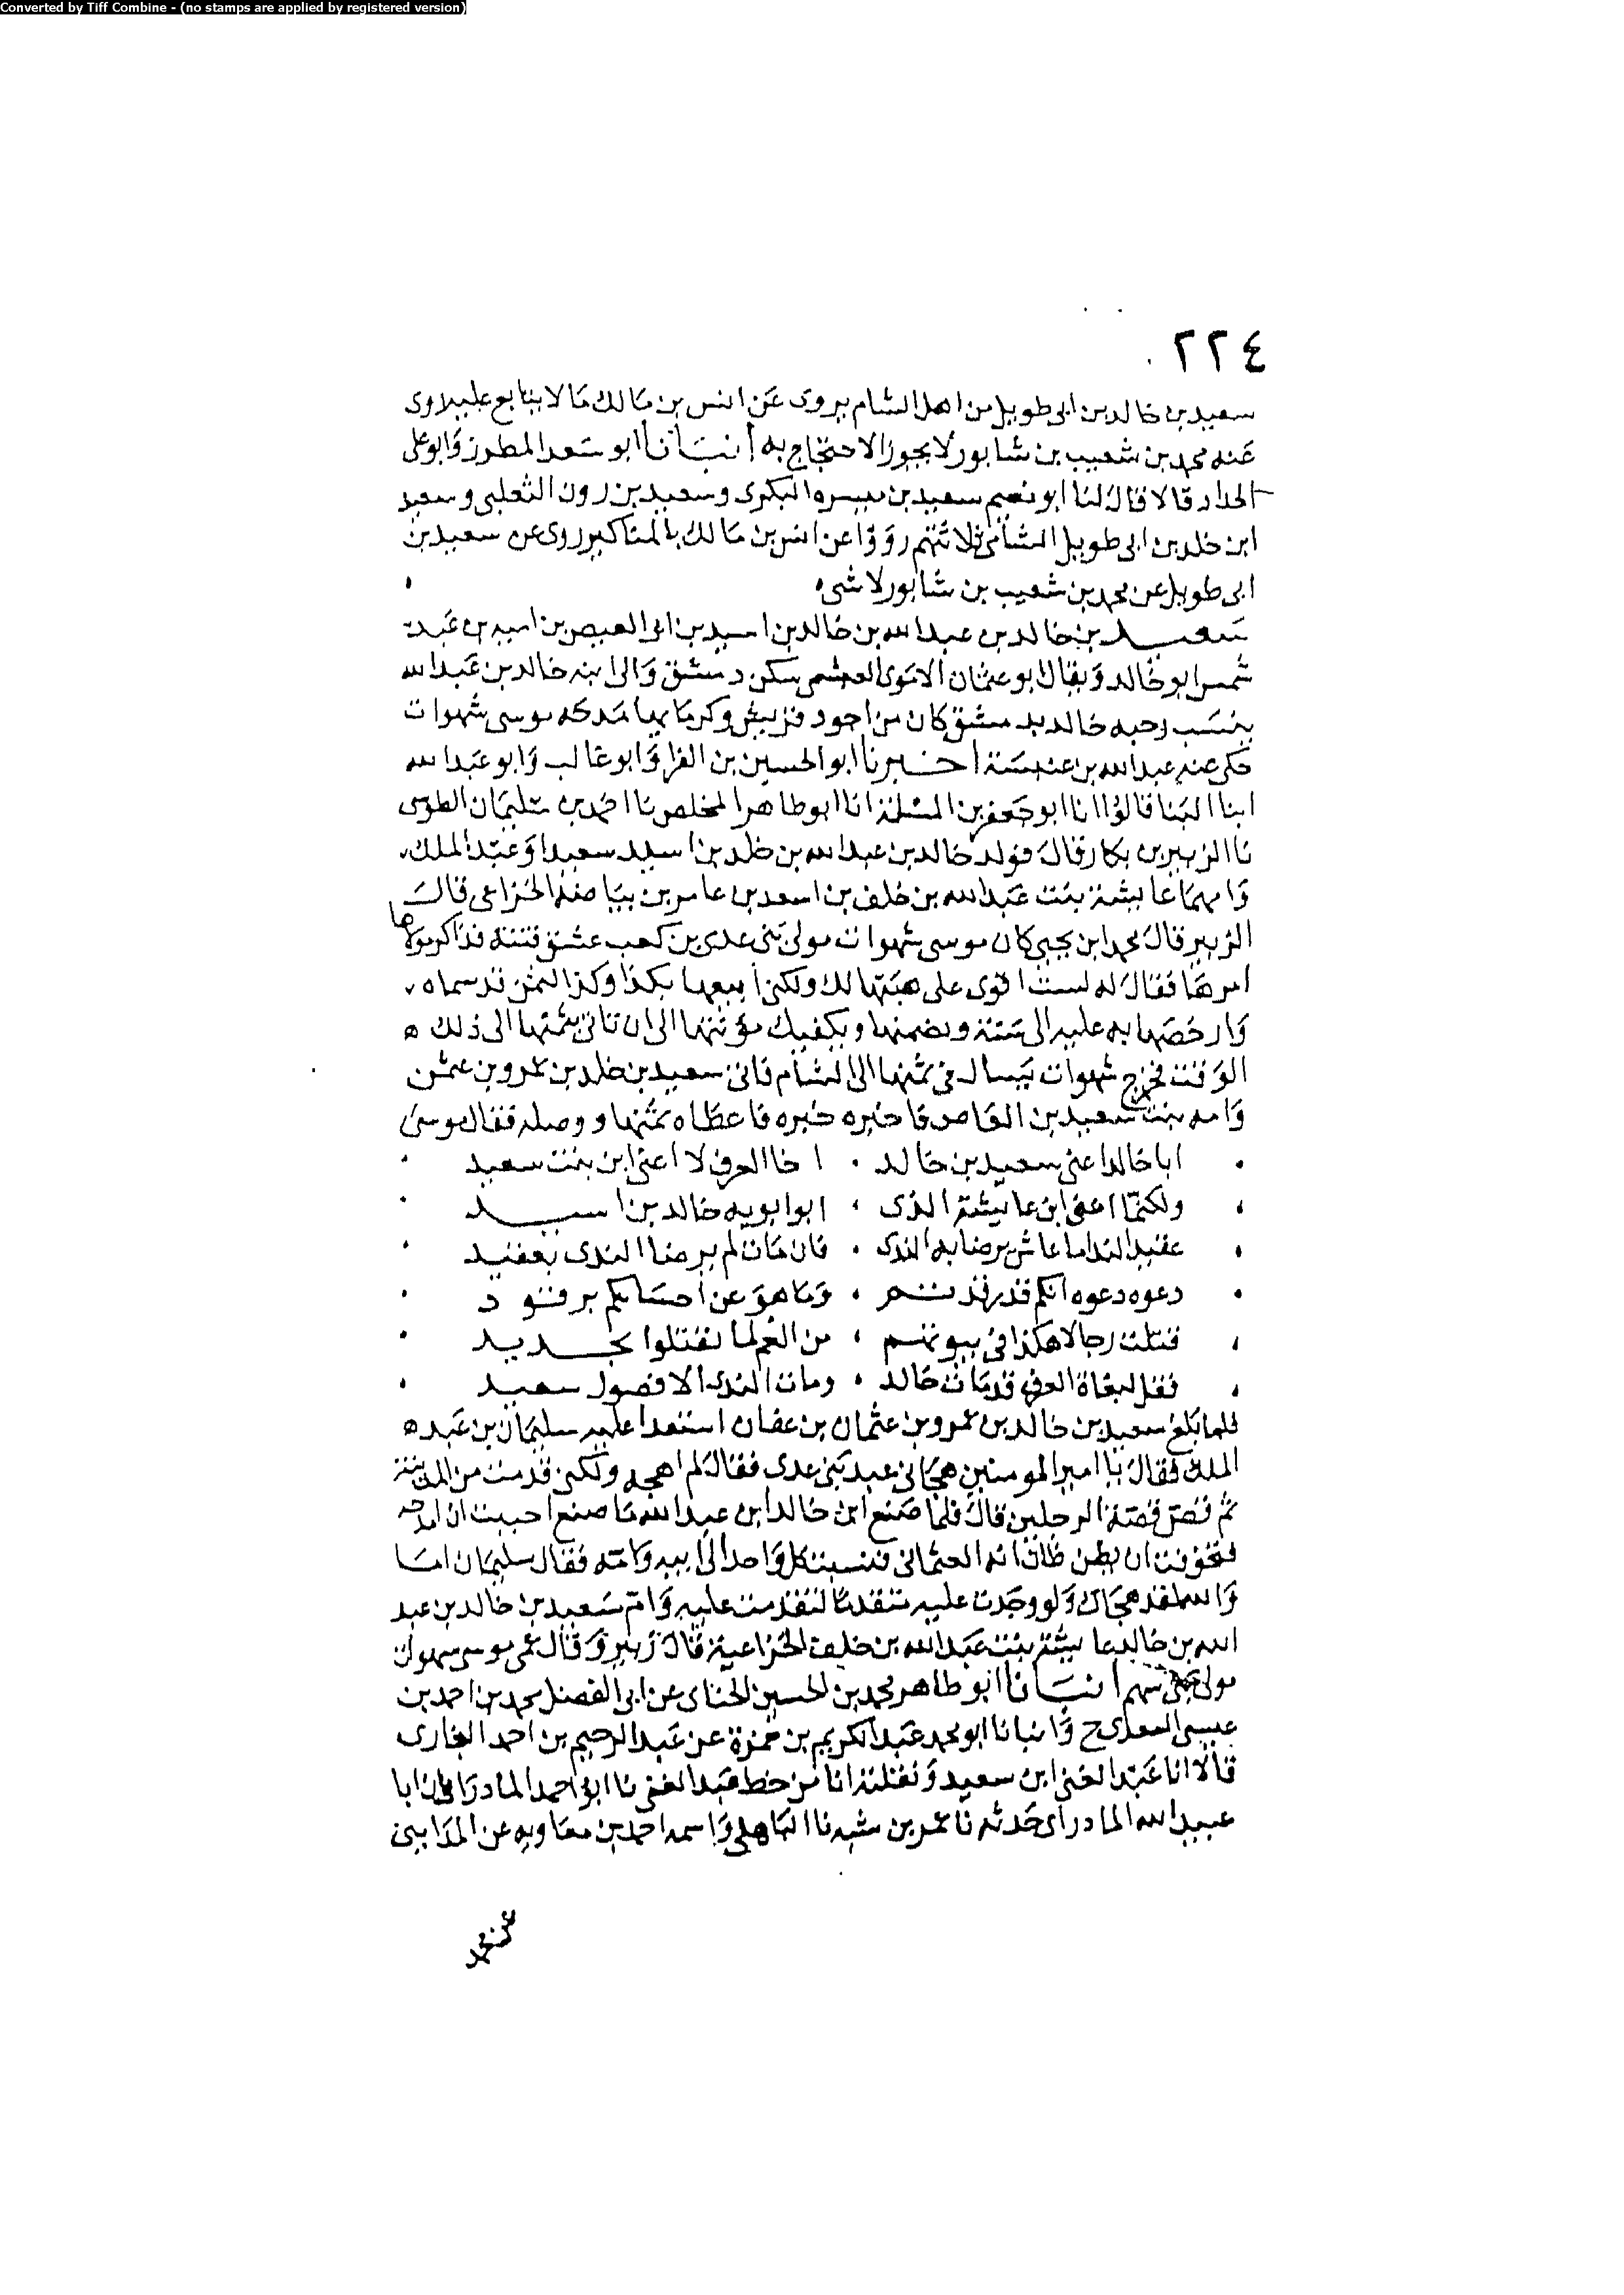 Converted by Tiff Combine - (no stamps are applied by registered version)
٢٢٤
سعيد بن خالد بن ابى طويل من اهل الشام يروى عن انس بن مالك ما لا يتابع عليه روى
عنه محمد بن شعيب بن شابور لا يجوز الاحتجاج به أنبانا ابو سعد المطرز وابو على
الحداد قالا قال لنا ابو نعيم سعيد بن ميسره البكرى وسعيد بن زون الثعلبى وسعيد
ابن خلد بن ابى طويل الشامى ثلاثتهم رووا عن انس بن مالك بالمناكير روى عن سعيد بن
ابى طويل عن محمد بن شعيب بن شابور لا شى
سعيد بن خالد بن عبد الله بن خالد بن اسيد بن ابى العيص بن اميه بن عبد
شمس ابو خالد ويقال ابو عثمان الاموى العبشمى سكن دمشق والى ابنه خالد بن عبد الله
ينسب رحبه خالد بدمشق كان من اجود قريش وكرمايها مدحه موسى شهوات
حكى عنه عبد الله بن عنبسة اخبرنا ابو الحسين بن الفرا وابو غالب وابو عبد الله
ابنا البنا قالوا انا ابو جعفر بن المسلمة انا ابو طاهر المخلص نا احمد بن سليمان الطوسى
نا الزبير بن بكار قال فولد خالد بن عبد الله بن خلد بن اسيد سعيدا وعبد الملك
وامهما عايشة بنت عبد الله بن خلف بن اسعد بن عامر بن بياضه الخزاعى قال
الزبير قال محمد ابن يحيى كان موسى شهوات مولى بنى عدى بن كعب عشق قتنة فذاكر مولاها
امرها فقال له لست اقوى على هبتها لك ولكن ابيعها بكذا وكذا الثمن قد سماه
وارخصها به عليه الى سنة ويضمنها ويكفيك مؤنتها الى ان تاتى بثمنها الى ذلك
الوقت فخرج شهوات يسال فى ثمنها الى الشام فاتى سعيد بن خلد بن عمرو بن عثمن
وامه بنت سعيد بن العاص فاخبره خبره فاعطاه ثمنها ووصله فقال موسى
ابا خالد اعنى سعيد بن خالد ، اخا العرف لا اعنى ابن بنت سعيد
ولكنما اعنى ابن عايشة الذى ، ابو ابويه خالد بن اسيد
عقيد الندا ما عاش يرضا به الندى ، فان مات لم يرضا الندى بعقيد
دعوه دعوه انكم قد رقدتم ، وما هو عن احسابكم برقود
قتلت رجالا هكذا فى بيوتهم ، من الغم لما تقتلوا بحديد
فقل لبغاة العرف قد مات خالد ، ومات الندى الا فضول سعيد
فلما بلغ سعيد بن خالد بن عمرو بن عثمان بن عفان استعدا عليه سليمان بن عبد
الملك فقال يا امير المومنين هجانى عبد بنى عدى فقال لم اهجه ولكن قدمت من المدينة
ثم قص قصة الرجلين قال فلما صنع ابن خالد ابن عبد الله ما صنع احببت ان امدحه
فتخوفت ان يظن ظان انه العثمانى فنسبت كل واحد الى ابيه وامه فقال سليمان اما
والله لقد هجاك ولو وجدت عليه متقدما لتقدمت عليه وام سعيد بن خالد بن عبد
الله بن خالد عايشة بنت عبد الله بن خلف الخزاعية قال زبير وقال عمى موسى سهوات
مولى بنى سهم انبانا ابو طاهر محمد بن الحسين الحناى عن ابى الفضل محمد بن احمد بن
عيسى السعدى ح وانبانا ابو محمد عبد الكريم بن حمزة عن عبد الرحيم بن احمد البخارى
قالا انا عبد الغنى ابن سعيد ونقلته انا من خط عبد الغنى نا ابو احمد المادراى ان ابا
عبيد الله المادراى حدثه نا عمر بن شبه نا الباهلى واسمه احمد بن معاويه عن المداينى
عن محمد